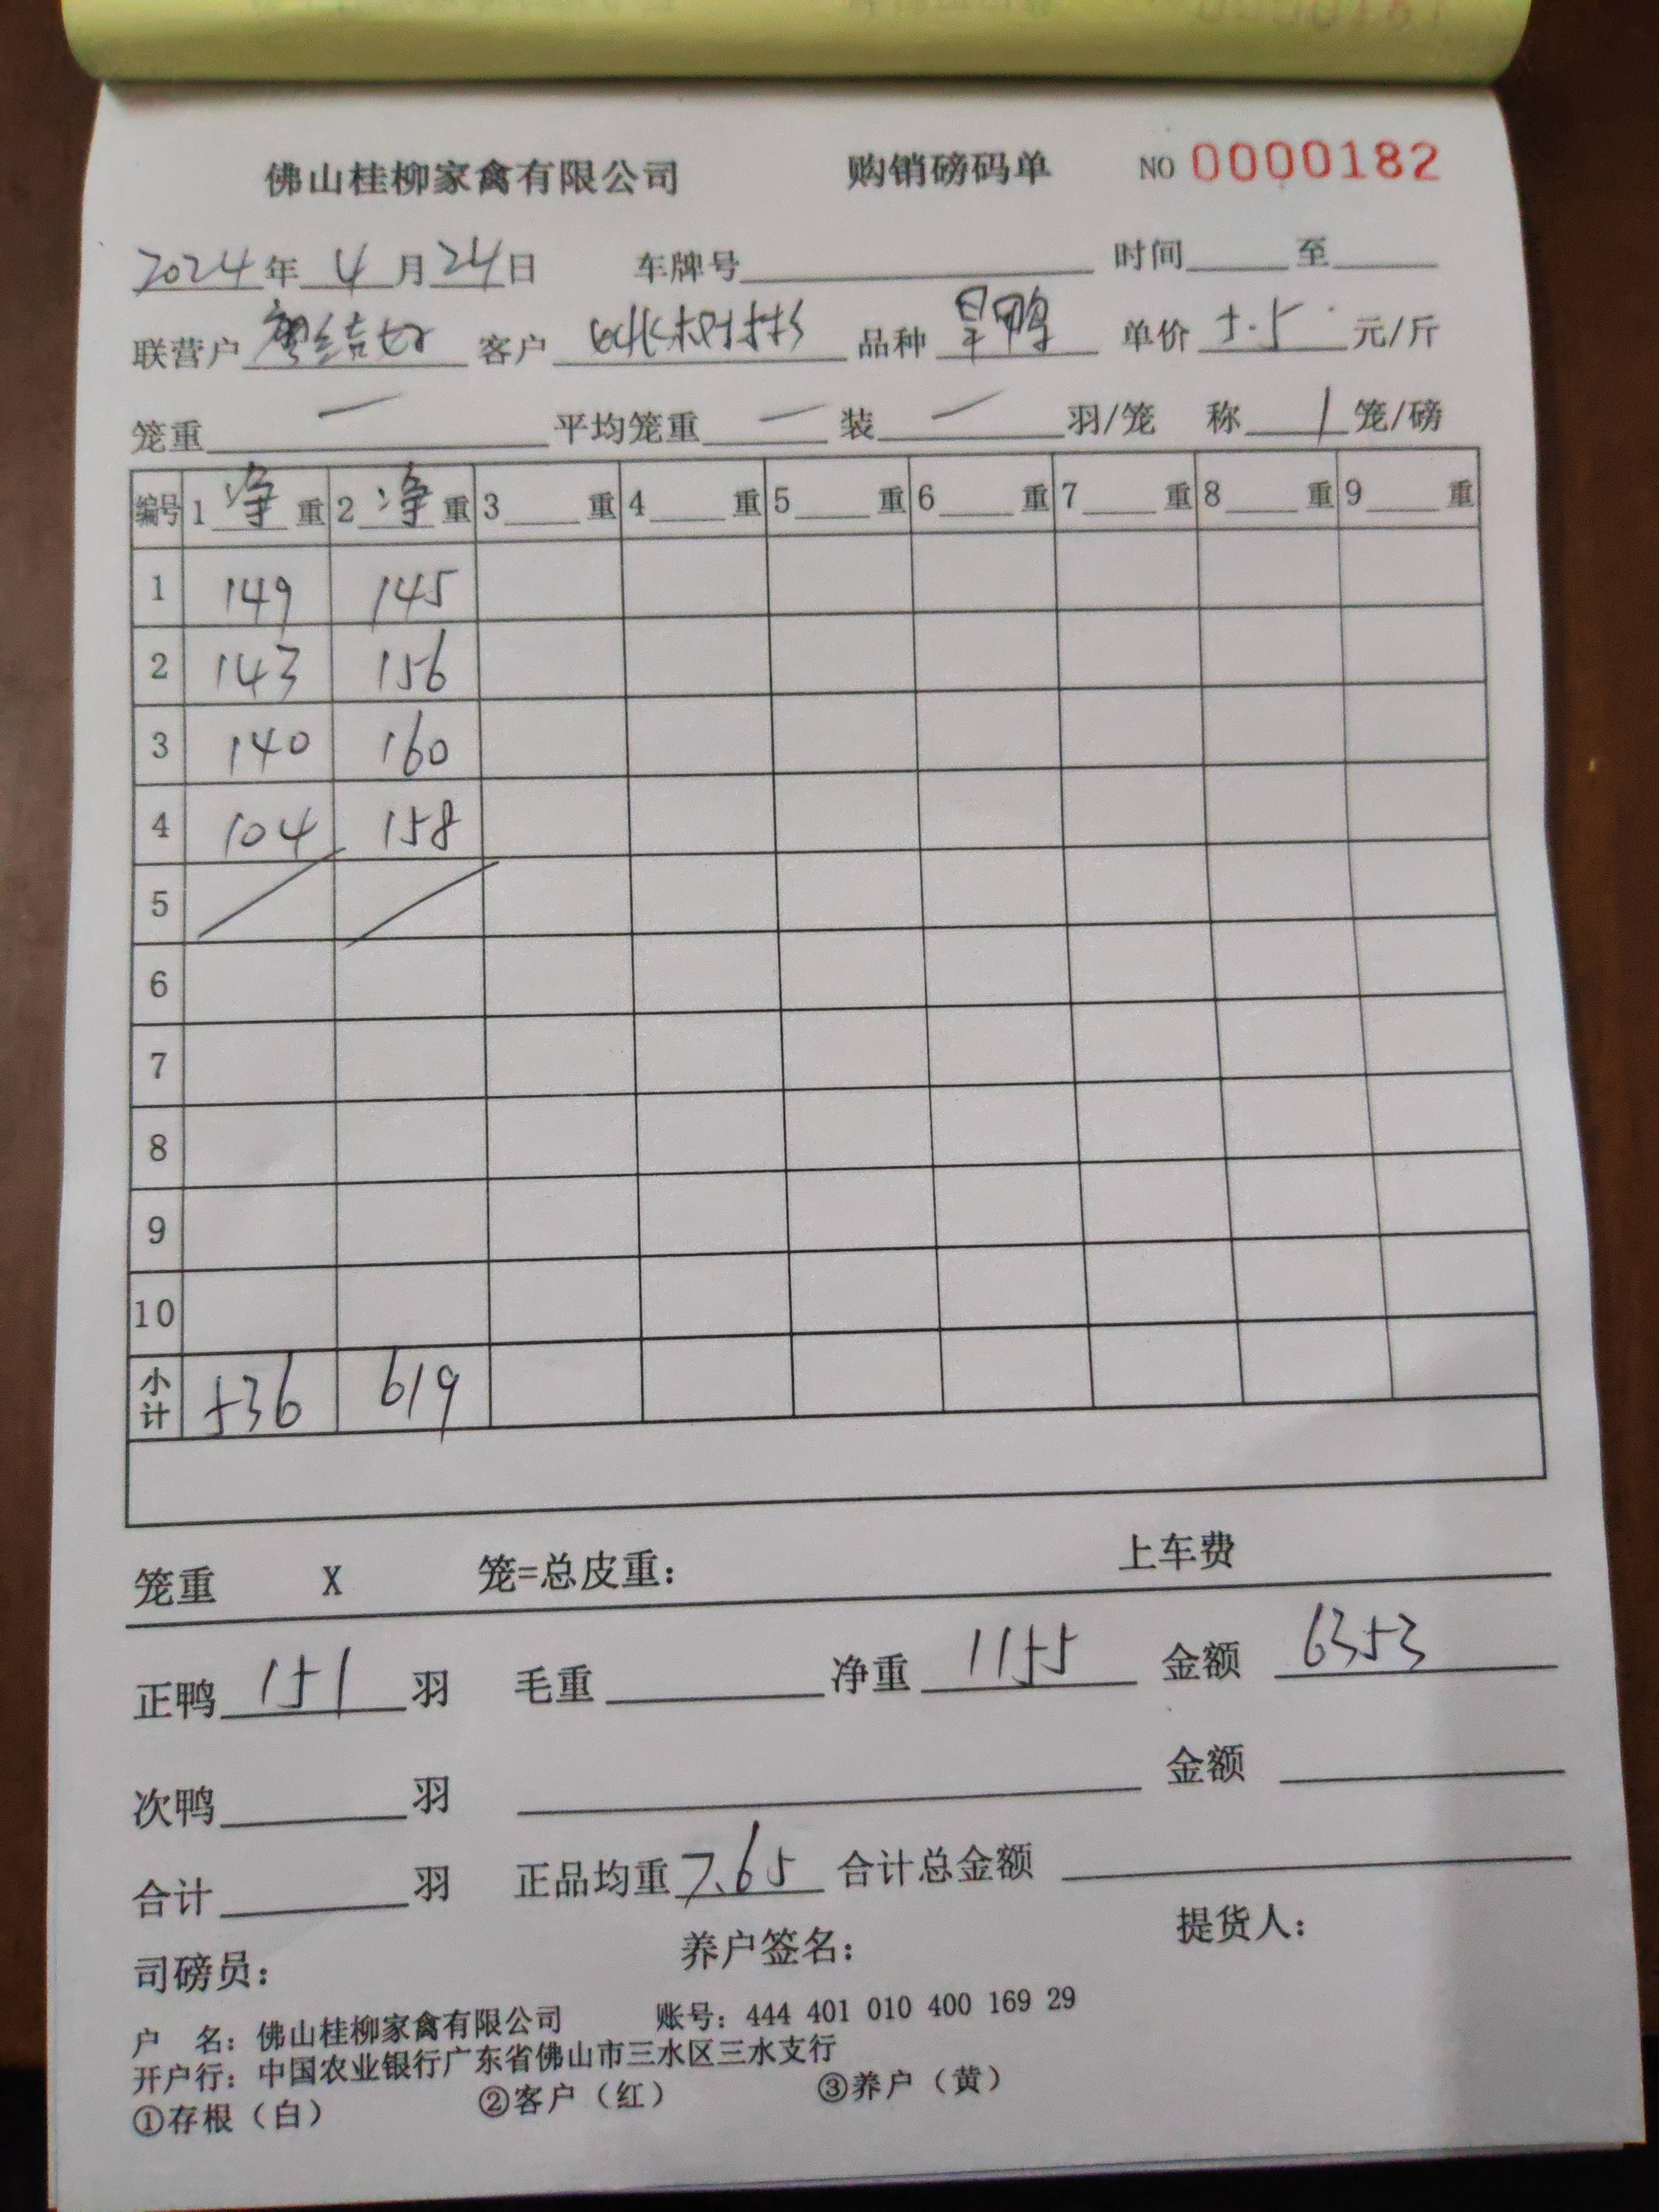 佛山桂柳家禽有限公司 购销磅码单 NO 0000182
2024年 4月24日 车牌号 时间 至
联营户 客户 品种 旱鸭 单价 5.5 元/斤
笼重 一 平均笼重 一 装 一 羽/笼 称 1 笼/磅
编号 1 净 重 2 净 重 3 重 4 重 5 重 6 重 7 重 8 重 9 重
1 149 145
2 143 156
3 140 160
4 104 158
5
6
7
8
9
10
小计 536 619
笼重 X 笼=总皮重: 上车费
正鸭 151 羽 毛重 净重 1155 金额 6353
次鸭 羽 金额
合计 羽 正品均重 7.65 合计总金额
司磅员: 养户签名: 提货人:
户 名: 佛山桂柳家禽有限公司 账号: 444 401 010 400 169 29
开户行: 中国农业银行广东省佛山市三水区三水支行
①存根（白） ②客户（红） ③养户（黄）